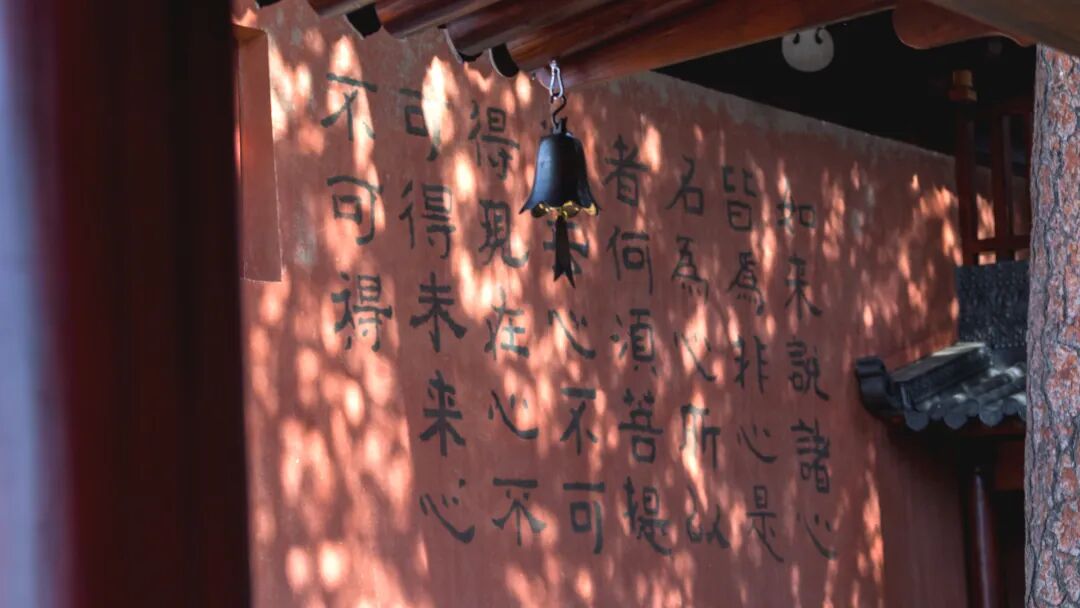 如来説諸心
皆為非心是
名為心所以
者何須菩提
去心不可
得現在心不
可得未来心
不可得